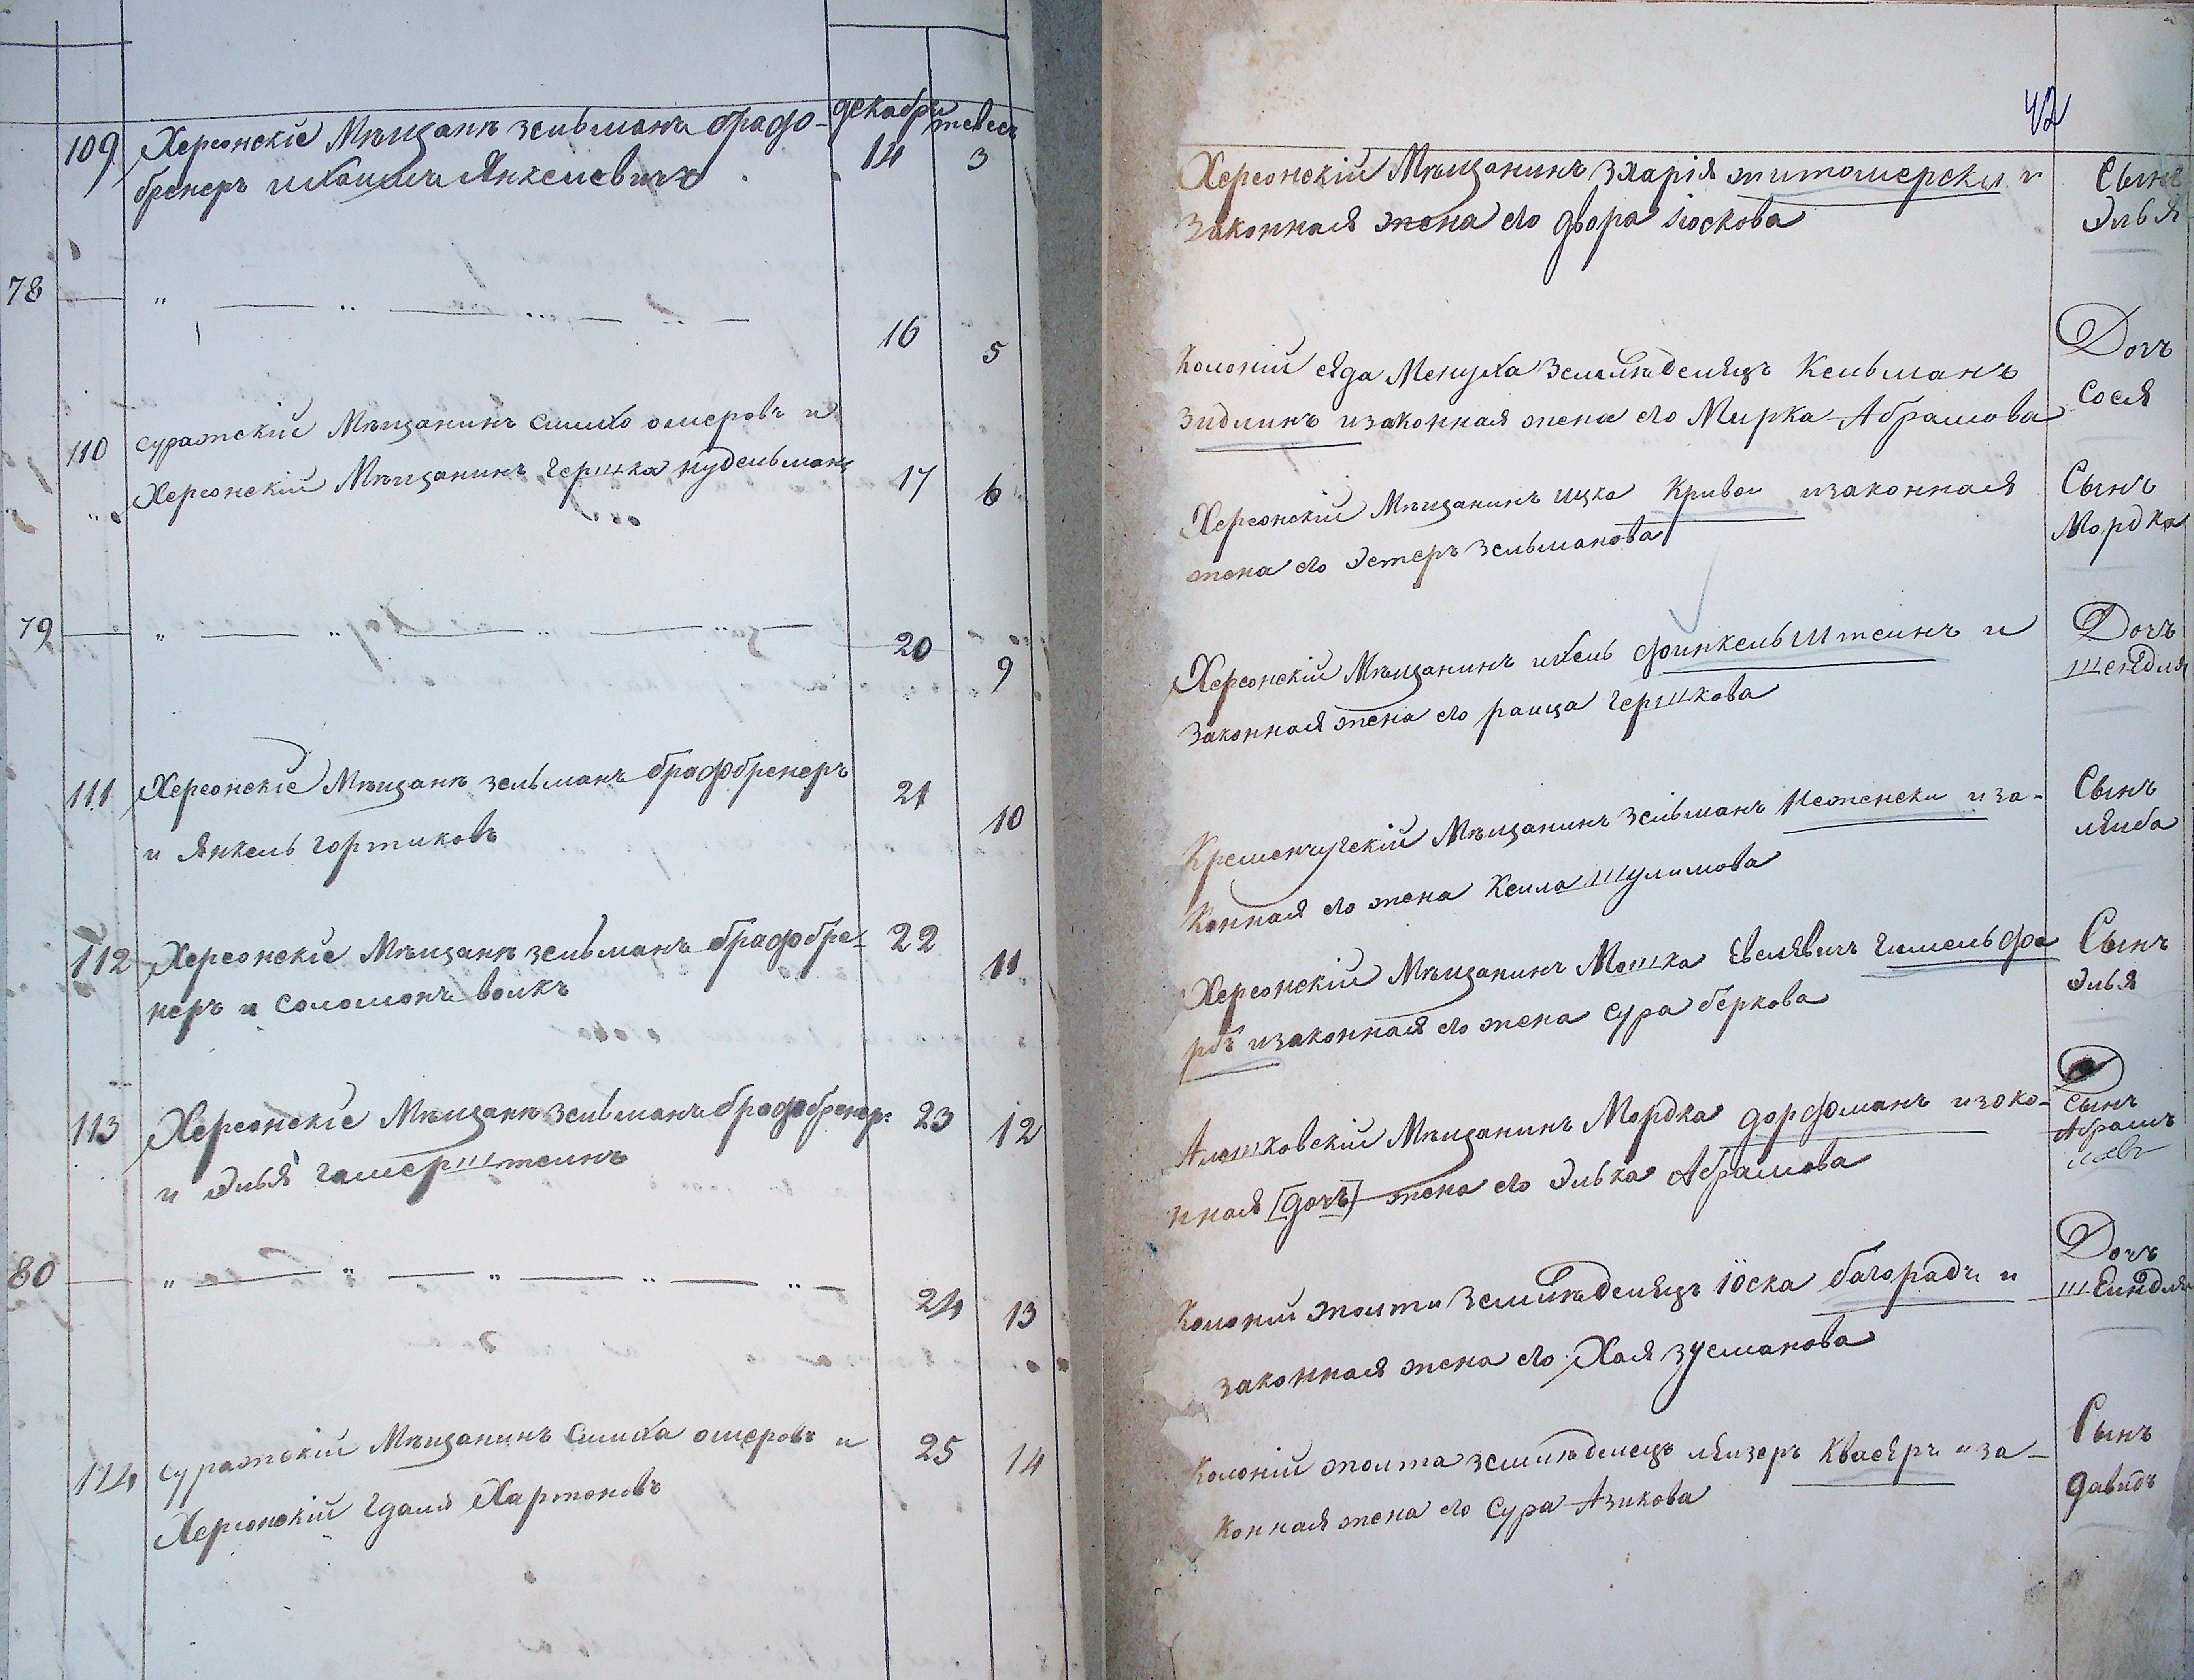 декабрь тевес
109 Херсонскіе Мѣщанѣ зельманъ брафо- 14 3
бренеръ Янкелевичъ
78 — " — " — " — " — 16 5
110 суражскій Мѣщанинъ симхо омеровъ и
" Херсонскій Мѣщанинъ Гершка нудельманъ 17 6
79 — " — " — " — " — 20 9
111 Херсонскіе Мѣщанѣ зельманъ брафобренеръ 21 10
и Янкель гортиковъ
112 Херсонскіе Мѣщанѣ зельманъ брафобре- 22 11
неръ и соломонъ волкъ
113 Херсонскіе Мѣщанѣ зельманъ брафобренер: 23 12
и Элья гамерштеинъ
80 — " — " — " — " — " — 24 13
114 суражскій Мѣщанинъ Симха омеровъ и 25 14
Херсонскій Гдаля Хартоновъ
42
Херсонскій Мѣщанинъ Зхарія житомерски и Сынъ
Законная жена его двора Іоскова Элья
Колоніи сяда Менуха Земледелецъ Кельманъ Дочъ
Зидлинъ изаконная жена его Мирка Абрамова Сося
Херсонскій Мѣщанинъ ицко Кривои изаконная Сынъ
жена его Эстеръ Зельманова Мордка
Херсонскій Мѣщанинъ ихель финкельштеинъ и Дочъ
Законная жена его раица Гершкова шендля
Кременчугскій Мѣщанинъ зельманъ неженски иза- Сынъ
Конная его жена Кеила Шулимова лейба
Херсонскій Мѣщанинъ Мошка Евелявичъ Гимельфа Сынъ
рбъ изаконная его жена сура беркова Элья
Алешковскій Мѣщанинъ Мордка дорфманъ изако- Сынъ
нная [дочъ] жена его Элька Абрамова Абрамъ
Колоніи жолти земледелецъ Іоска багорадъ и Дочъ
законная жена его Хая зусманова шеиндля
Колоніи жолта земледелецъ леизеръ Квасеръ иза- Сынъ
Конная жена его Сура Азикова давидъ